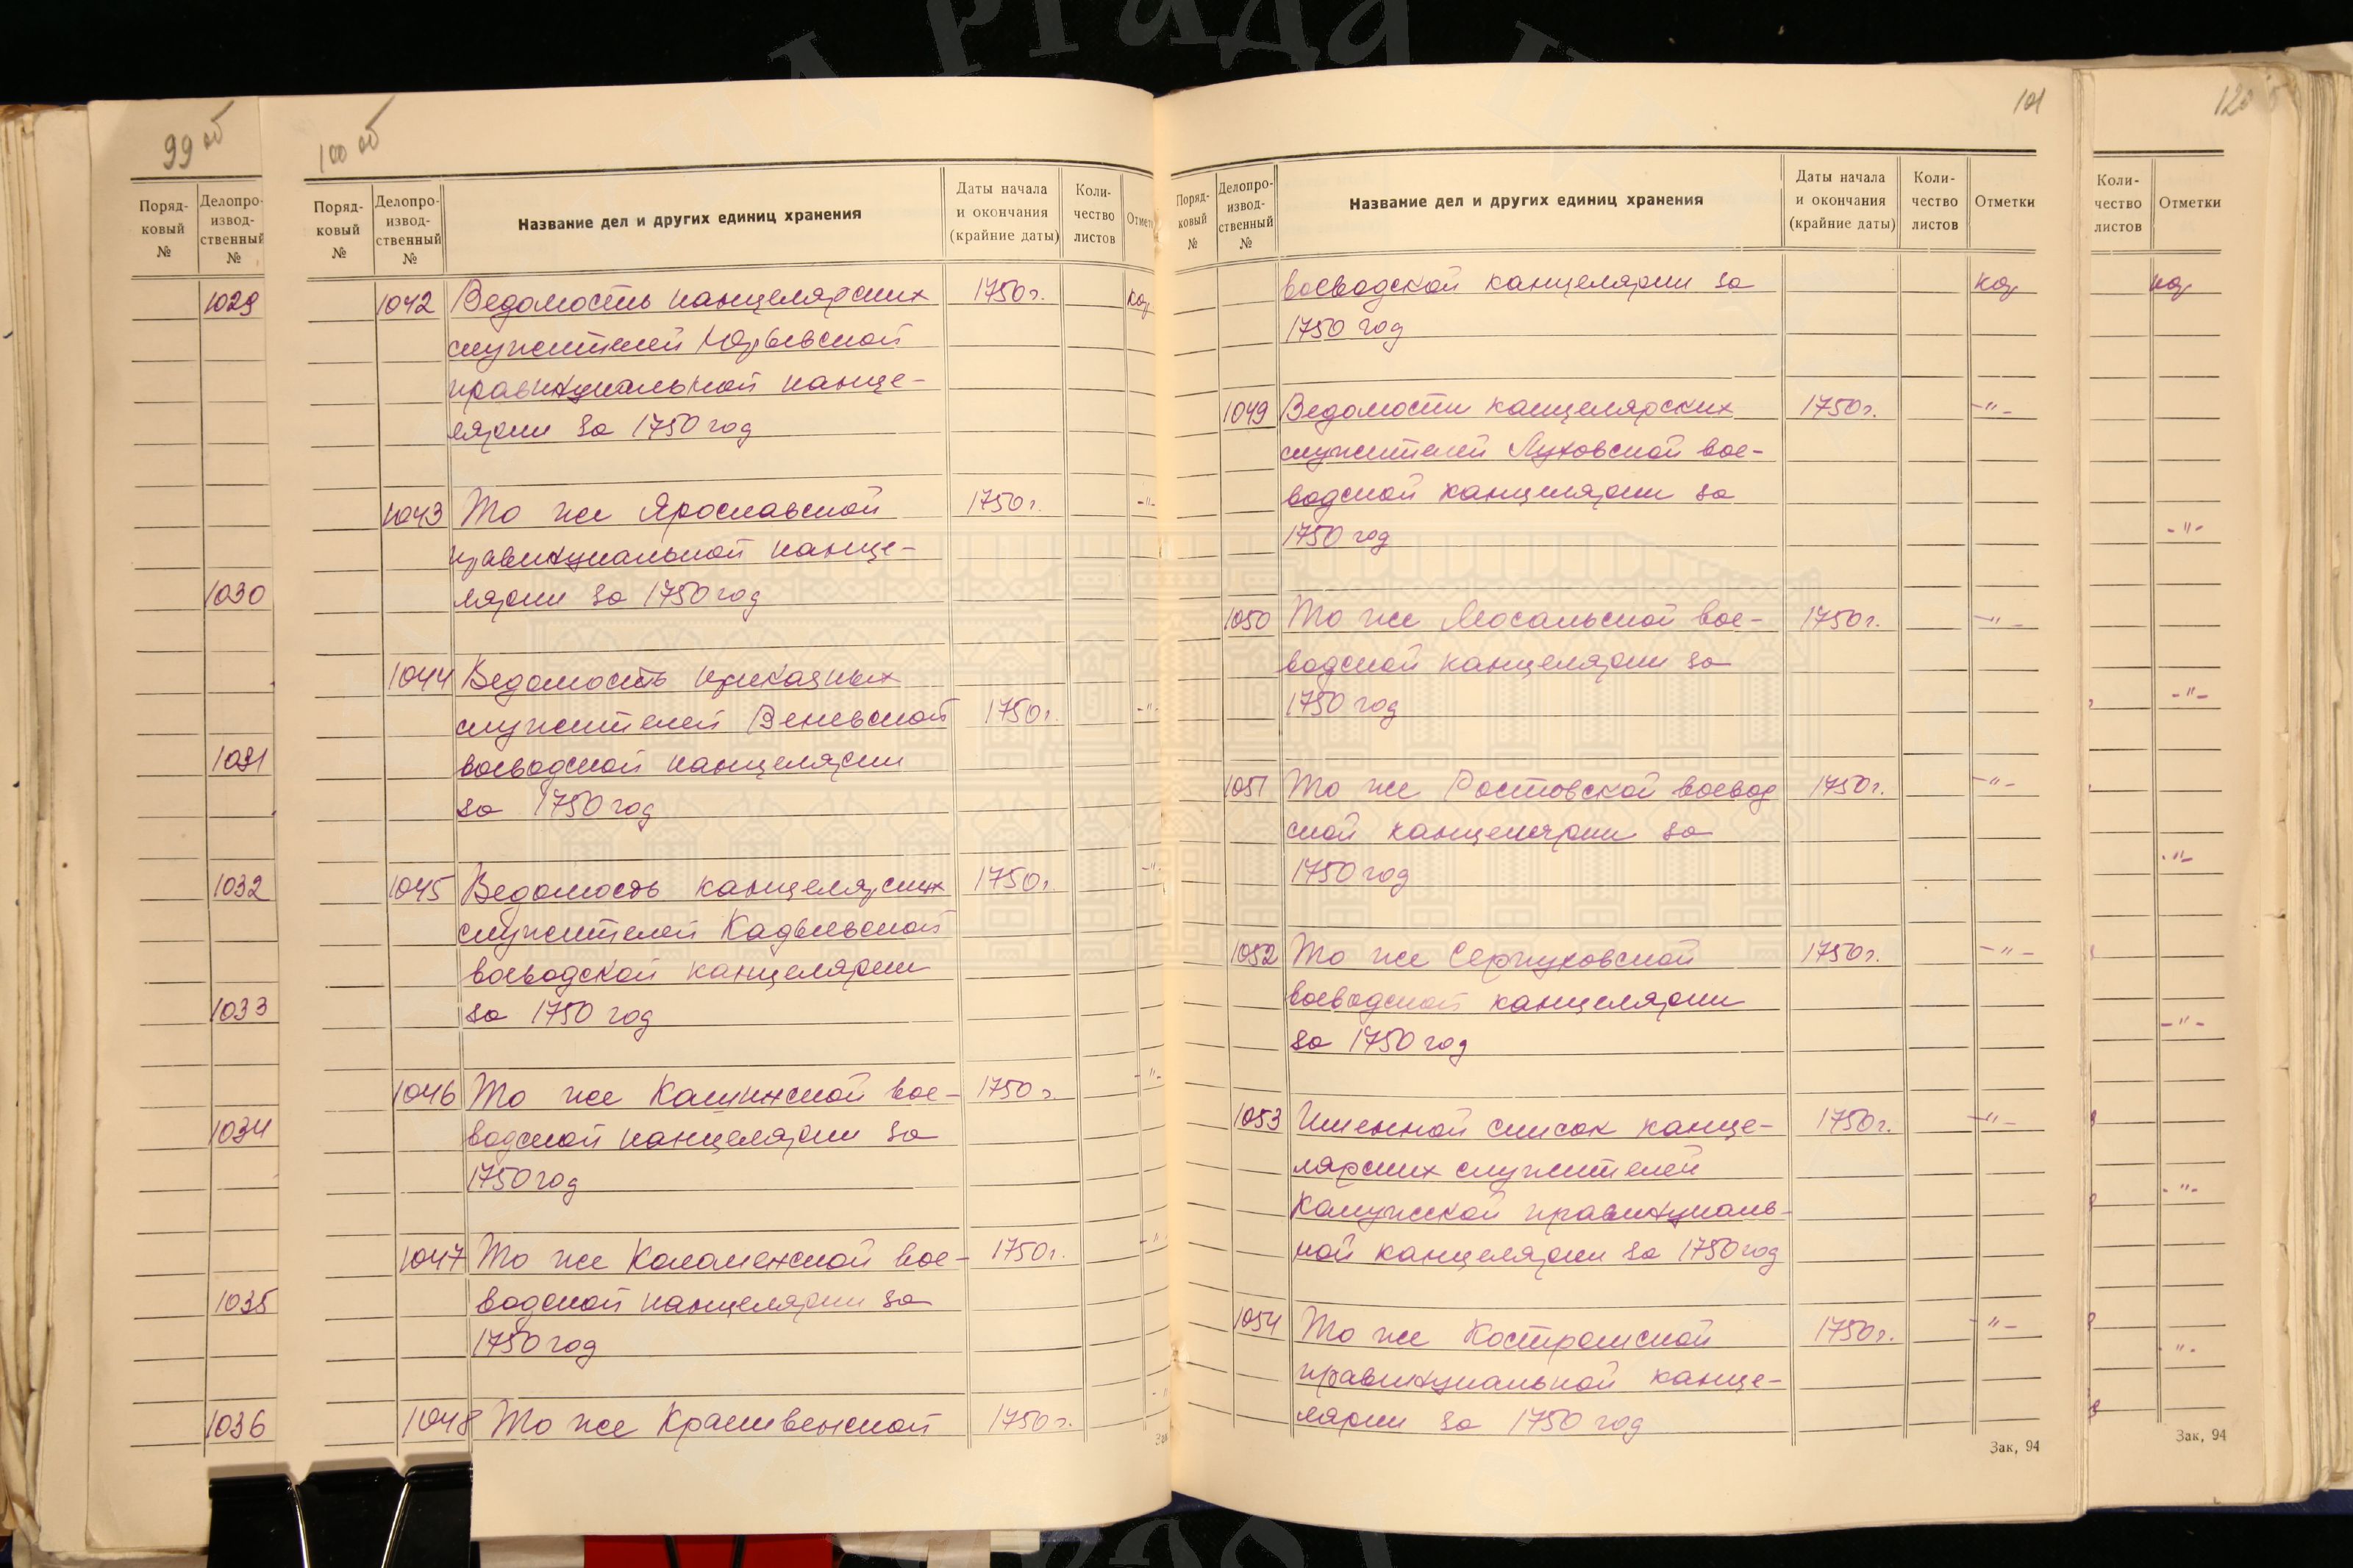 99 об
Поряд-
ковый
№
Делопро-
извод-
ственный
№
1029
1030
1031
1032
1033
1034
1035
1036
100 об
Поряд-
ковый
№
Делопро-
извод-
ственный
№
Название дел и других единиц хранения
Даты начала
и окончания
(крайние даты)
Коли-
чество
листов
1042 Ведомость канцелярских 1750 г.
служителей Юрьевской
провинциальной канце-
лярии за 1750 год
1043 То же Ярославской 1750 г. -"-
провинциальной канце-
лярии за 1750 год
1044 Ведомость приказных
служителей Веневской 1750 г. -"-
воеводской канцелярии
за 1750 год
1045 Ведомость канцелярских 1750 г. -"-
служителей Кадыевской
воеводской канцелярии
за 1750 год
1046 То же Кашинской вое- 1750 г. -"-
водской канцелярии за
1750 год
1047 То же Коломенской вое- 1750 г. -"-
водской канцелярии за
1750 год
1048 То же Крапивенской 1750 г. -"-
101
Поряд-
ковый
№
Делопро-
извод-
ственный
№
Название дел и других единиц хранения
Даты начала
и окончания
(крайние даты)
Коли-
чество
листов
Отметки
воеводской канцелярии за
1750 год
1049 Ведомости канцелярских 1750 г. -"-
служителей Луховской вое-
водской канцелярии за
1750 год
1050 То же Мосальской вое- 1750 г. -"-
водской канцелярии за
1750 год
1051 То же Ростовской воевод 1750 г. -"-
ской канцелярии за
1750 год
1052 То же Серпуховской 1750 г. -"-
воеводской канцелярии
за 1750 год
1053 Именной список канце- 1750 г. -"-
лярских служителей
Калужской провинциаль-
ной канцелярии за 1750 год
1054 То же Костромской 1750 г. -"-
провинциальной канце-
лярии за 1750 год
Зак, 94
Коли-
чество
листов
Отметки
-"-
-"-
-"-
-"-
-"-
-"-
Зак, 94